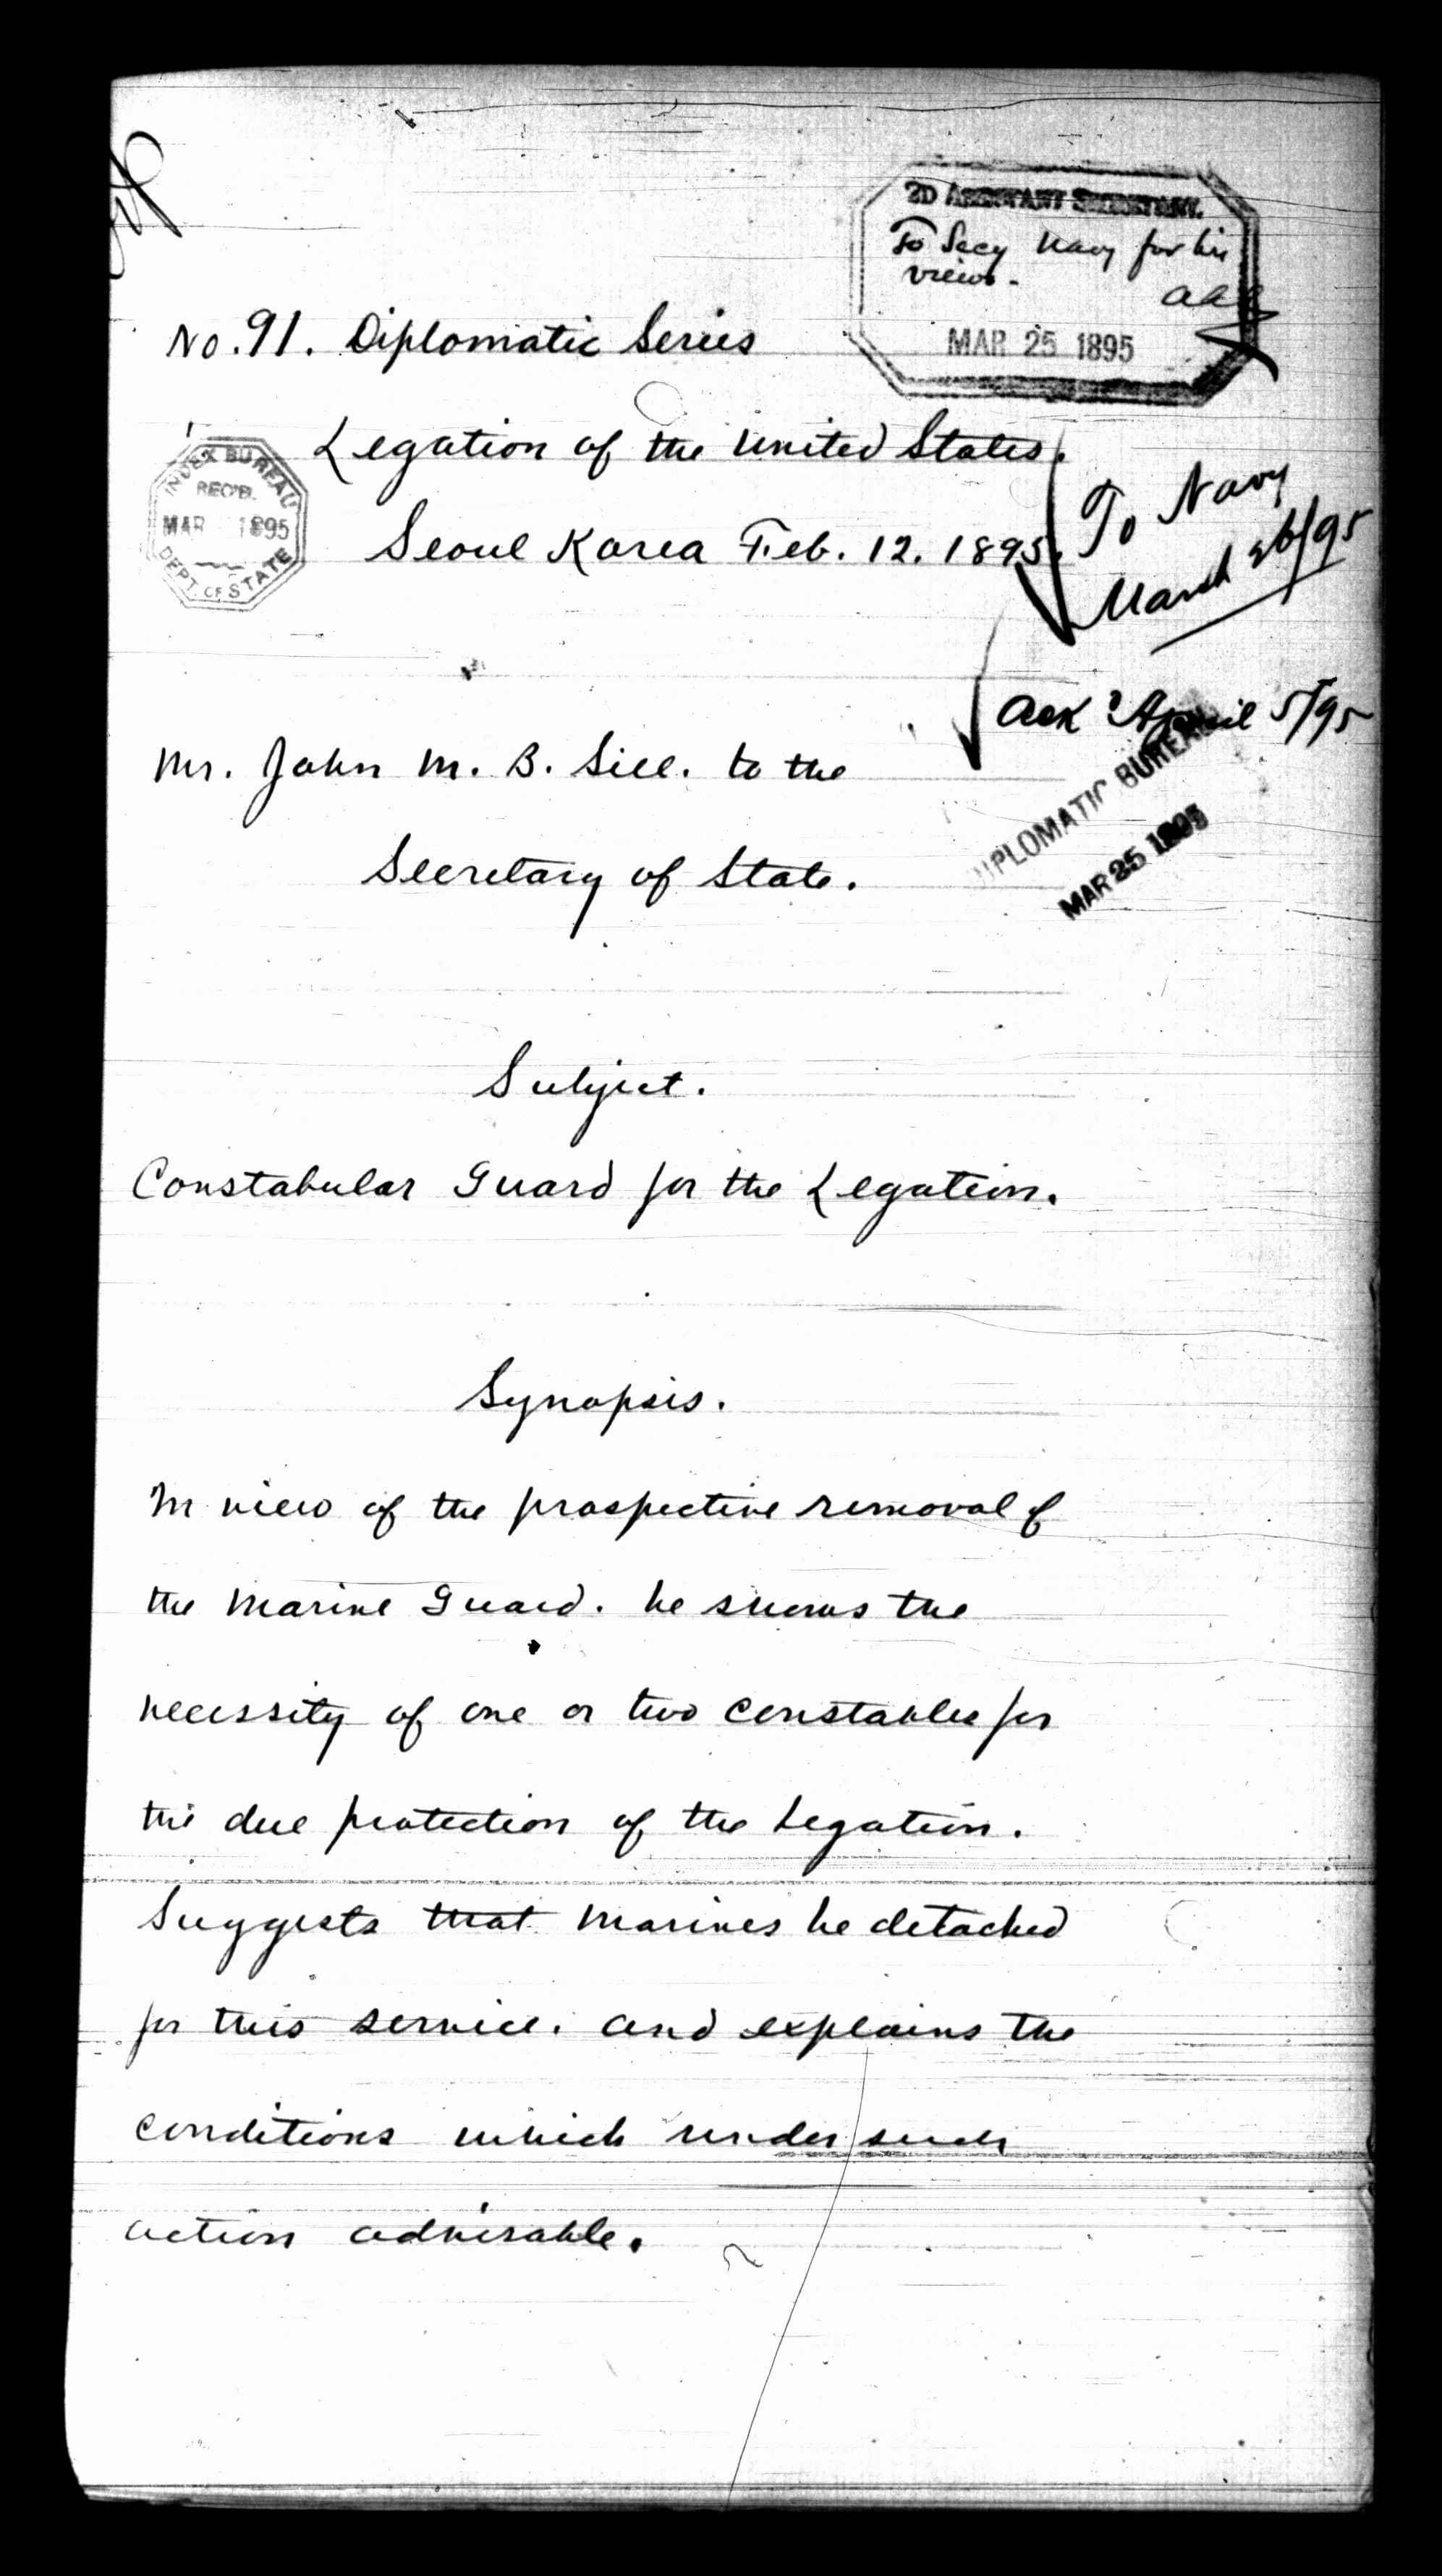 2D ASSISTANT SECRETARY.
To Secy Navy for his
views.
MAR 25 1895
No. 91. Diplomatic Series
Legation of the United States.
INDEX BUREAU
REC'D.
MAR 1895
DEPT. OF STATE
Seoul Korea Feb. 12. 1895.
To Navy
March 26/95
Ack'd April 5/95
Mr. John M. B. Sill. to the
DIPLOMATIC BUREAU
MAR 25 1895
Secretary of State.
Subject.
Constabular Guard for the Legation.
Synopsis.
In view of the prospective removal of
the Marine Guard. he shows the
necessity of one or two constables for
the due protection of the Legation.
Suggests that Marines be detached
for this service. and explains the
conditions which render such
action advisable.